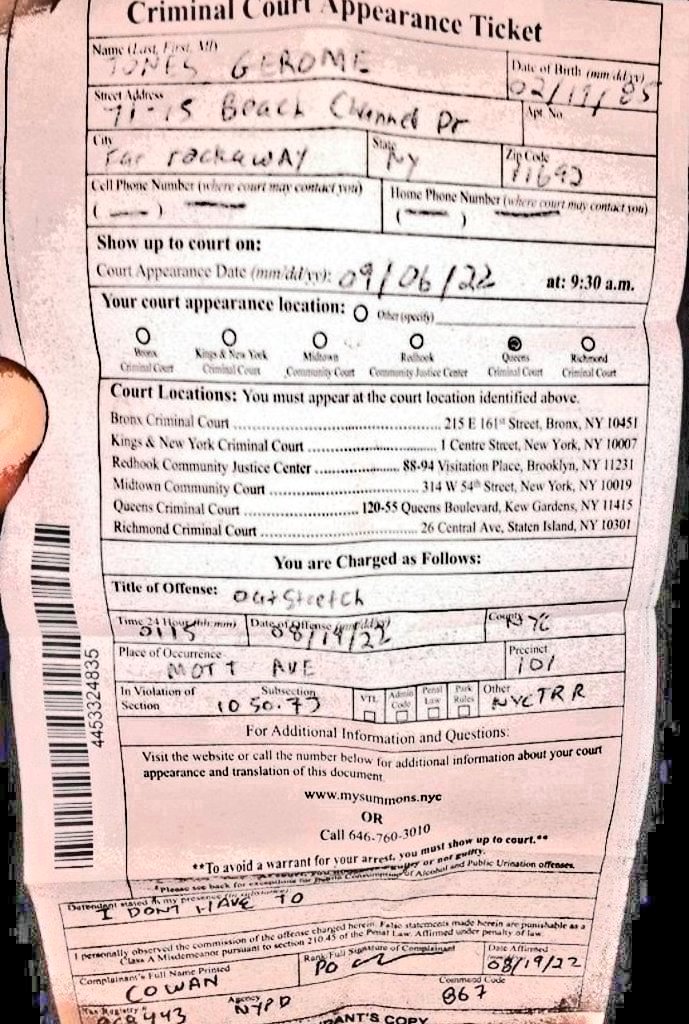 Criminal Court Appearance Ticket
Name (Last, First, MI)
JONES GEROME
Date of Birth (mm/dd/yy)
02/19/85
Street Address
71-15 Beach Channel Dr
Apt. No.
City
Far rockaway
State
NY
Zip Code
11692
Cell Phone Number (where court may contact you)
Home Phone Number (where court may contact you)
Show up to court on:
Court Appearance Date (mm/dd/yy): 09/06/22 at: 9:30 a.m.
Your court appearance location: Other (specify)
Bronx Criminal Court
Kings & New York Criminal Court
Midtown Community Court
Redhook Community Justice Center
Queens Criminal Court
Richmond Criminal Court
Court Locations: You must appear at the court location identified above.
Bronx Criminal Court ........ 215 E 161st Street, Bronx, NY 10451
Kings & New York Criminal Court ........ 1 Centre Street, New York, NY 10007
Redhook Community Justice Center ........ 88-94 Visitation Place, Brooklyn, NY 11231
Midtown Community Court ........ 314 W 54th Street, New York, NY 10019
Queens Criminal Court ........ 120-55 Queens Boulevard, Kew Gardens, NY 11415
Richmond Criminal Court ........ 26 Central Ave, Staten Island, NY 10301
You are Charged as Follows:
Title of Offense: OutStretch
Time 24 Hour (hh:mm)
0115
Date of Offense (mm/dd/yy)
08/19/22
County
NYC
Place of Occurrence
MOTT AVE
Precinct
101
In Violation of Section
Subsection
1050.73
VTL
Admin Code
Penal Law
Park Rules
Other
NYCTRR
For Additional Information and Questions:
Visit the website or call the number below for additional information about your court
appearance and translation of this document.
www.mysummons.nyc
OR
Call 646-760-3010
**To avoid a warrant for your arrest, you must show up to court.**
*Please see back for exceptions for Public Consumption of Alcohol and Public Urination offenses.
Defendant stated in my presence
I DONT HAVE TO
I personally observed the commission of the offense charged herein. False statements made herein are punishable as a
Class A Misdemeanor pursuant to section 210.45 of the Penal Law. Affirmed under penalty of law.
Complainant's Full Name Printed
COWAN
Rank/Full Signature of Complainant
PO
Date Affirmed
08/19/22
Tax Registry #
968443
Agency
NYPD
Command Code
867
4453324835